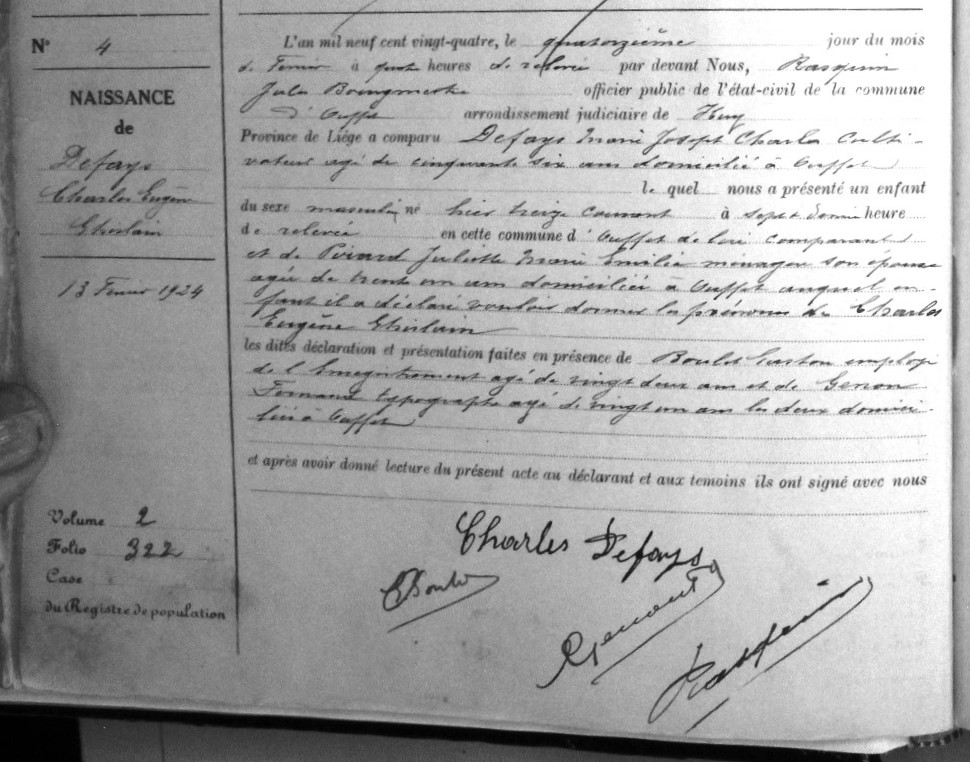 N° 4
NAISSANCE
de
Defays
Charles Eugène
Ghislain
13 Fevrier 1924
Volume 2
Folio 322
Case
du Registre de population
L'an mil neuf cent vingt-quatre, le quatorzième jour du mois
de Fevrier à quatre heures de relevée par devant Nous, Rasquin
Jules officier public de l'état-civil de la commune
d'Ouffet arrondissement judiciaire de Huy
Province de Liége a comparu Defays Marie Joseph Charles culti-
vateur agé de cinquante six ans domicilié à Ouffet
le quel nous a présenté un enfant
du sexe masculin né hier treize courant à sept & demie heure
de relevée en cette commune d'Ouffet de lui comparant
et de Poiard Juliette Marie Emilie ménagère son épouse
agée de trente un ans domiciliée à Ouffet auquel en-
fant il a déclaré vouloir donner les prénoms de Charles
Eugène Ghislain
les dites déclaration et présentation faites en présence de Boulet Gaston employé
de l'Enregistrement agé de vingt deux ans et de Genon
Fernand typographe agé de vingt un ans les deux domici-
liés à Ouffet
et après avoir donné lecture du présent acte au déclarant et aux temoins ils ont signé avec nous
Charles Defays
GBoulet
Genon
Rasquin